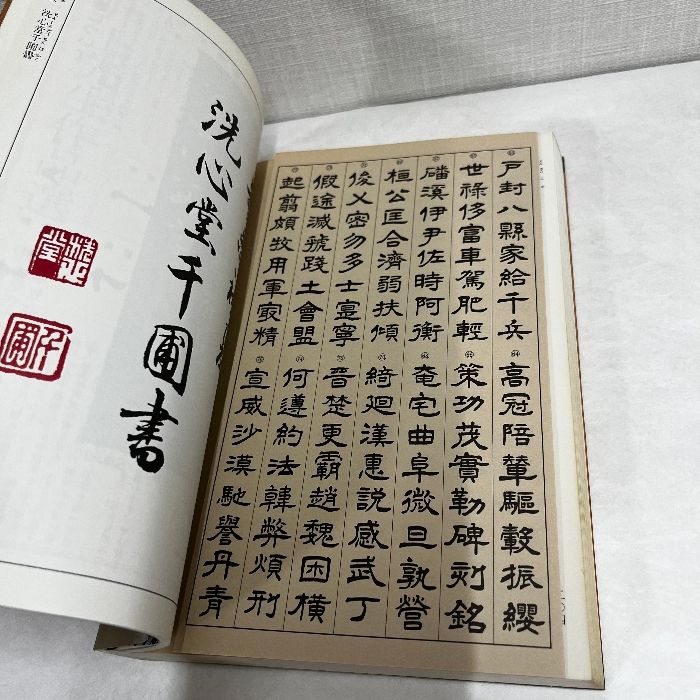 戶封八縣家給千兵
高冠陪輦驅轂振纓
世祿侈富車駕肥輕
策功茂實勒碑刻銘
磻溪伊尹佐時阿衡
奄宅曲阜微旦孰營
桓公匡合濟弱扶傾
綺迴漢惠說感武丁
俊乂密勿多士寔寧
晉楚更霸趙魏困橫
假途滅虢踐土會盟
何遵約法韓弊煩刑
起翦頗牧用軍冣精
宣威沙漠馳譽丹青
洗心堂千圃書
洗心堂千圃書